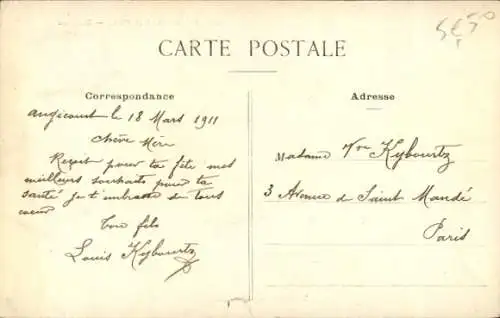 CARTE POSTALE
Correspondance
Angicourt le 18 Mars 1911
Chère Mère
Reçois pour ta fête mes
meilleurs souhaits pour ta
santé je t'embrasse de tous
cœur
Ton fils
Louis Kybourtz
Adresse
Madame Vve Kybourtz
3 Avenue de Saint Mandé
Paris